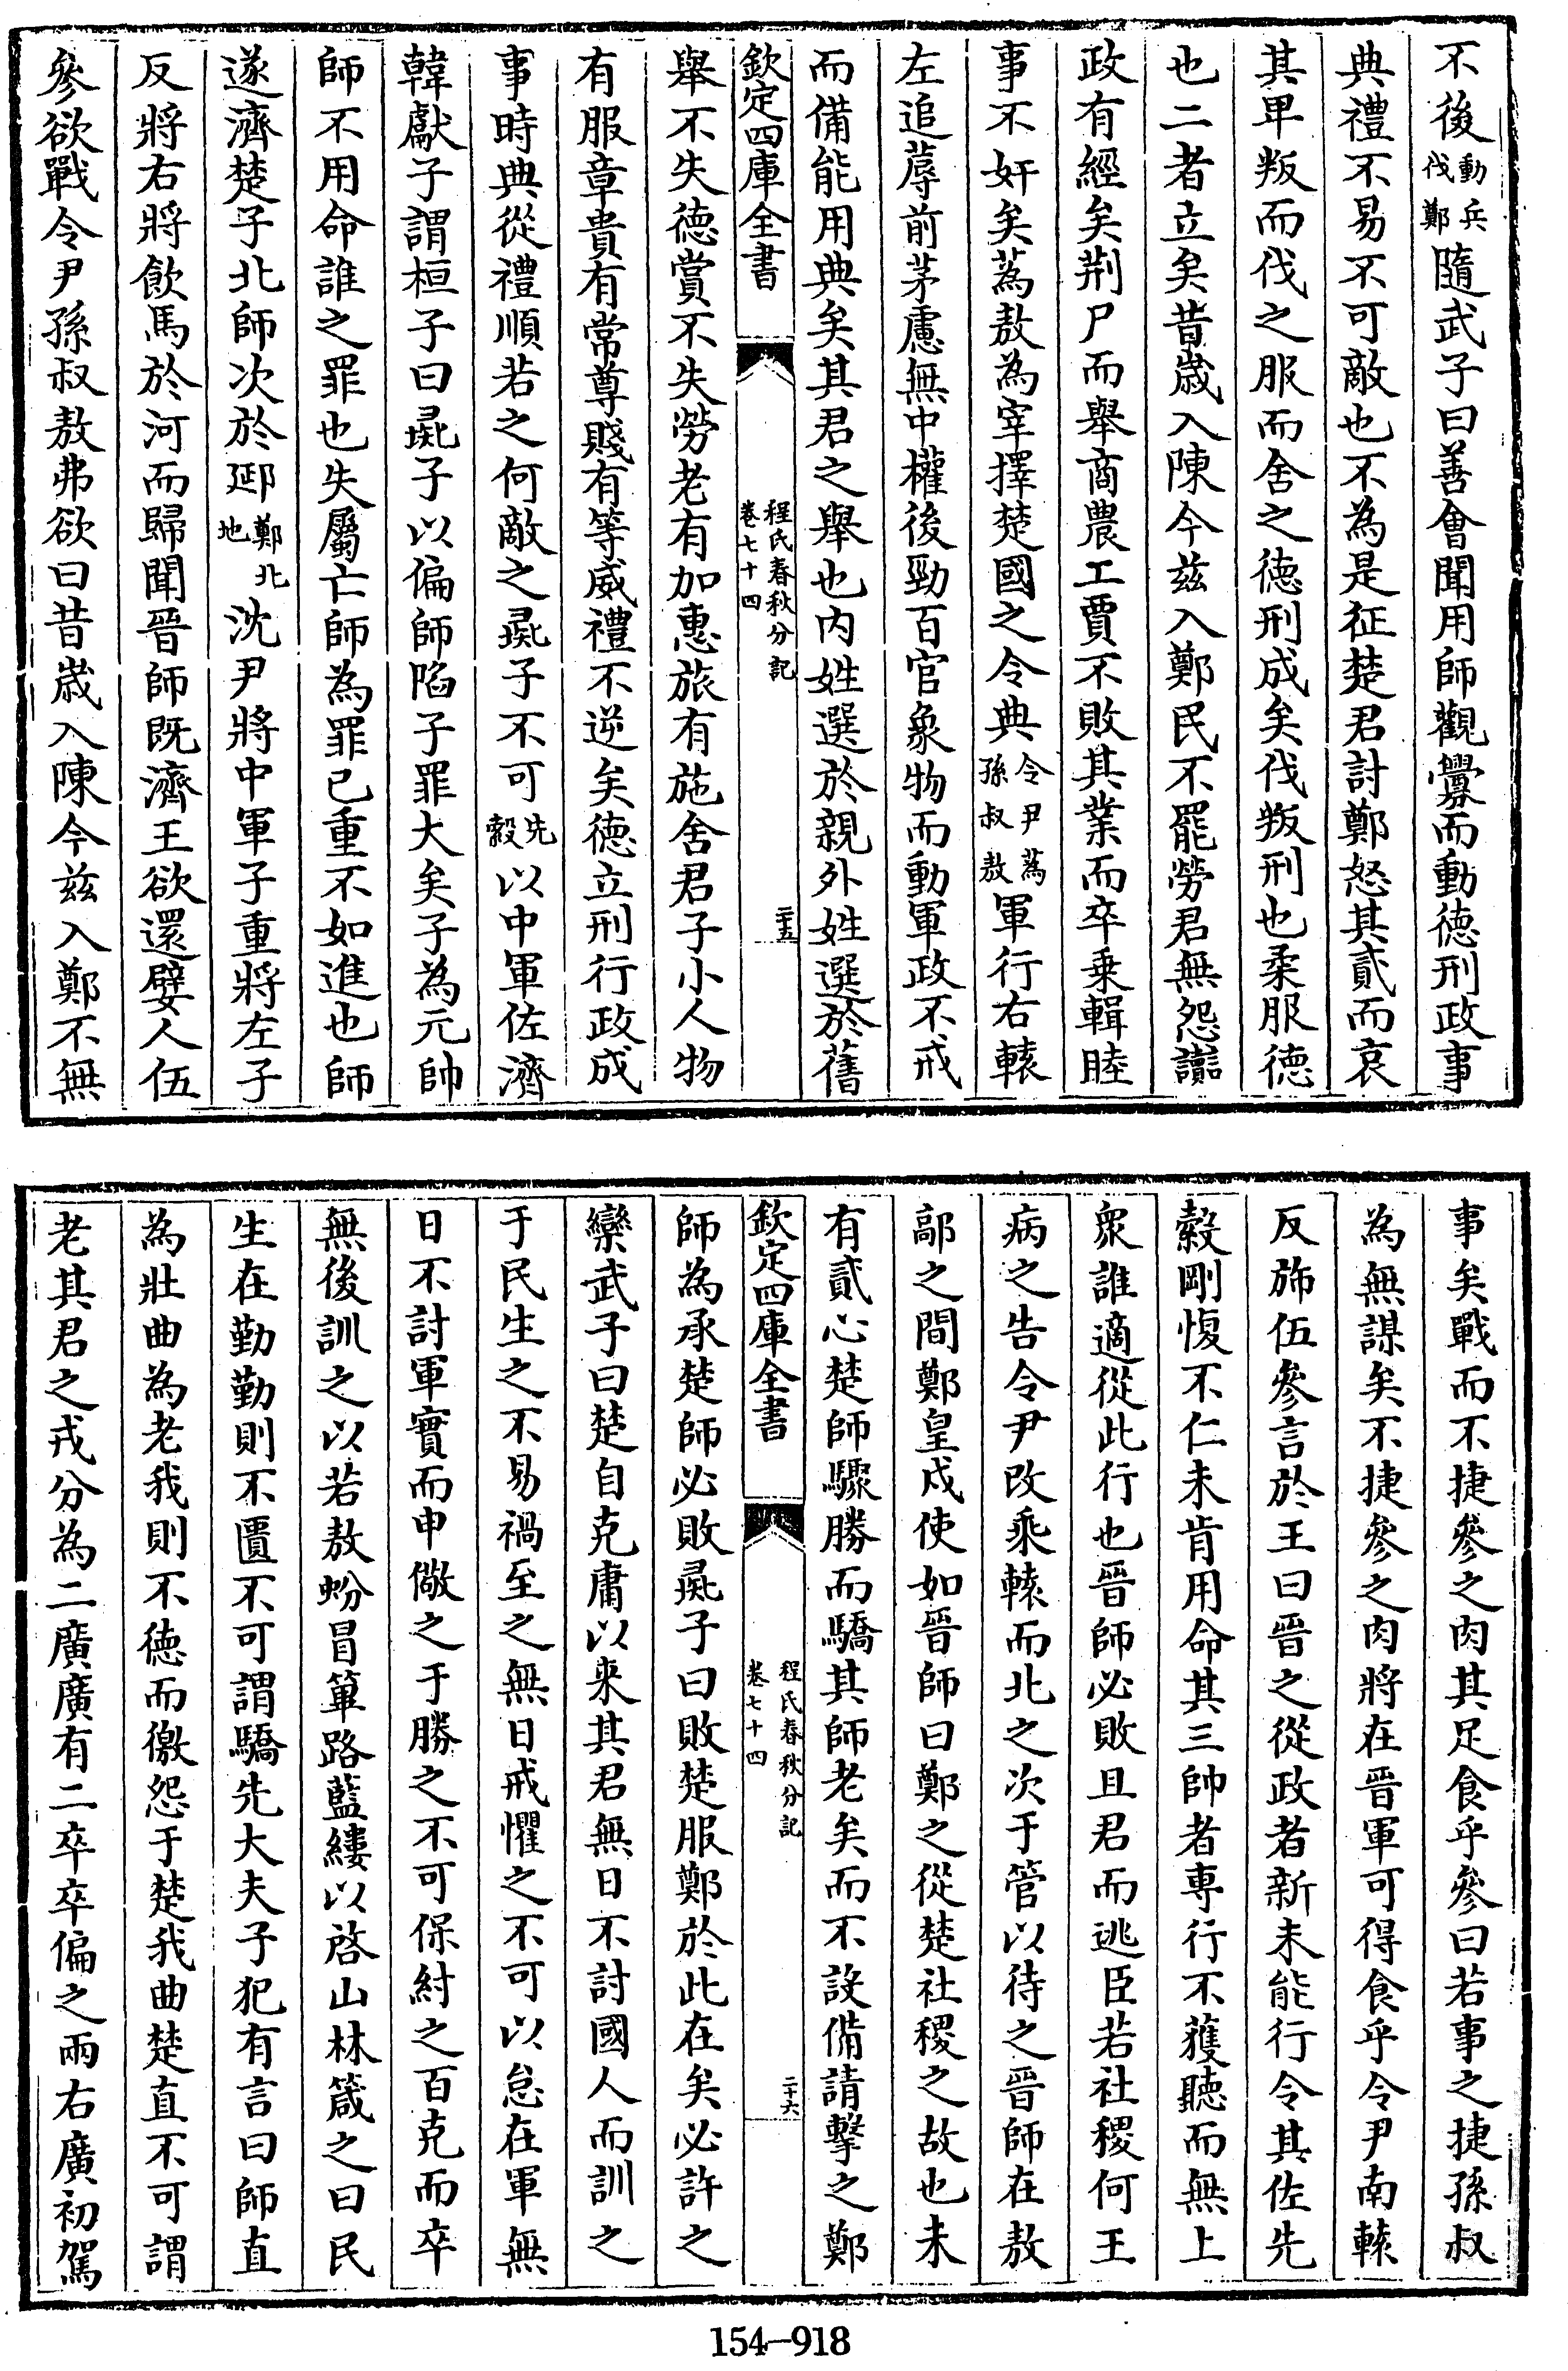 不後動兵伐鄭隨武子曰善會聞用師觀釁而動德刑政事
典禮不易不可敵也不為是征楚君討鄭怒其貳而哀
其卑叛而伐之服而舍之德刑成矣伐叛刑也柔服德
也二者立矣昔歲入陳今兹入鄭民不罷勞君無怨讟
政有經矣荆尸而舉商農工賈不敗其業而卒乗輯睦
事不奸矣蒍敖為宰擇楚國之令典令尹蒍孫叔敖軍行右轅
左追蓐前茅慮無中權後勁百官象物而動軍政不戒
而備能用典矣其君之舉也内姓選於親外姓選於舊
欽定四庫全書
程氏春秋分記
卷七十四
二十五
舉不失德賞不失勞老有加惠旅有施舍君子小人物
有服章貴有常尊賤有等威禮不逆矣德立刑行政成
事時典從禮順若之何敵之彘子不可先縠以中軍佐濟
韓獻子謂桓子曰彘子以偏師陷子罪大矣子為元帥
師不用命誰之罪也失屬亡師為罪已重不如進也師
遂濟楚子北師次於郔鄭北地沈尹將中軍子重將左子
反將右將飲馬於河而歸聞晉師既濟王欲還嬖人伍
參欲戰令尹孫叔敖弗欲曰昔歲入陳今兹入鄭不無
事矣戰而不捷參之肉其足食乎參曰若事之捷孫叔
為無謀矣不捷參之肉將在晉軍可得食乎令尹南轅
反斾伍參言於王曰晉之從政者新未能行令其佐先
縠剛愎不仁未肯用命其三帥者專行不獲聽而無上
衆誰適從此行也晉師必敗且君而逃臣若社稷何王
病之告令尹改乘轅而北之次于管以待之晉師在敖
鄗之間鄭皇戍使如晉師曰鄭之從楚社稷之故也未
有貳心楚師驟勝而驕其師老矣而不設備請擊之鄭
欽定四庫全書
程氏春秋分記
卷七十四
二十六
師為承楚師必敗彘子曰敗楚服鄭於此在矣必許之
欒武子曰楚自克庸以来其君無日不討國人而訓之
于民生之不易禍至之無日戒懼之不可以怠在軍無
日不討軍實而申儆之于勝之不可保紂之百克而卒
無後訓之以若敖蚡冒篳路藍縷以啓山林箴之曰民
生在勤勤則不匱不可謂驕先大夫子犯有言曰師直
為壯曲為老我則不德而徼怨于楚我曲楚直不可謂
老其君之戎分為二廣廣有二卒卒偏之兩右廣初駕
154-918